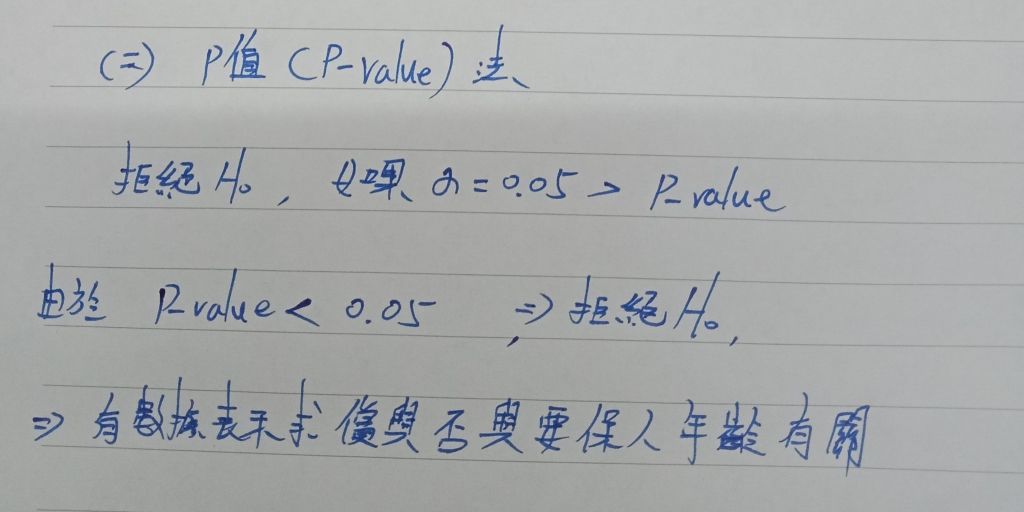 (二) P值 (P-value) 法、
拒絕 H₀ , 如果、α = 0.05 > P-value
由於 P-value < 0.05 , ⇒ 拒絕 H₀ ,
⇒ 有數據表示求償與否與要保人年齡有關